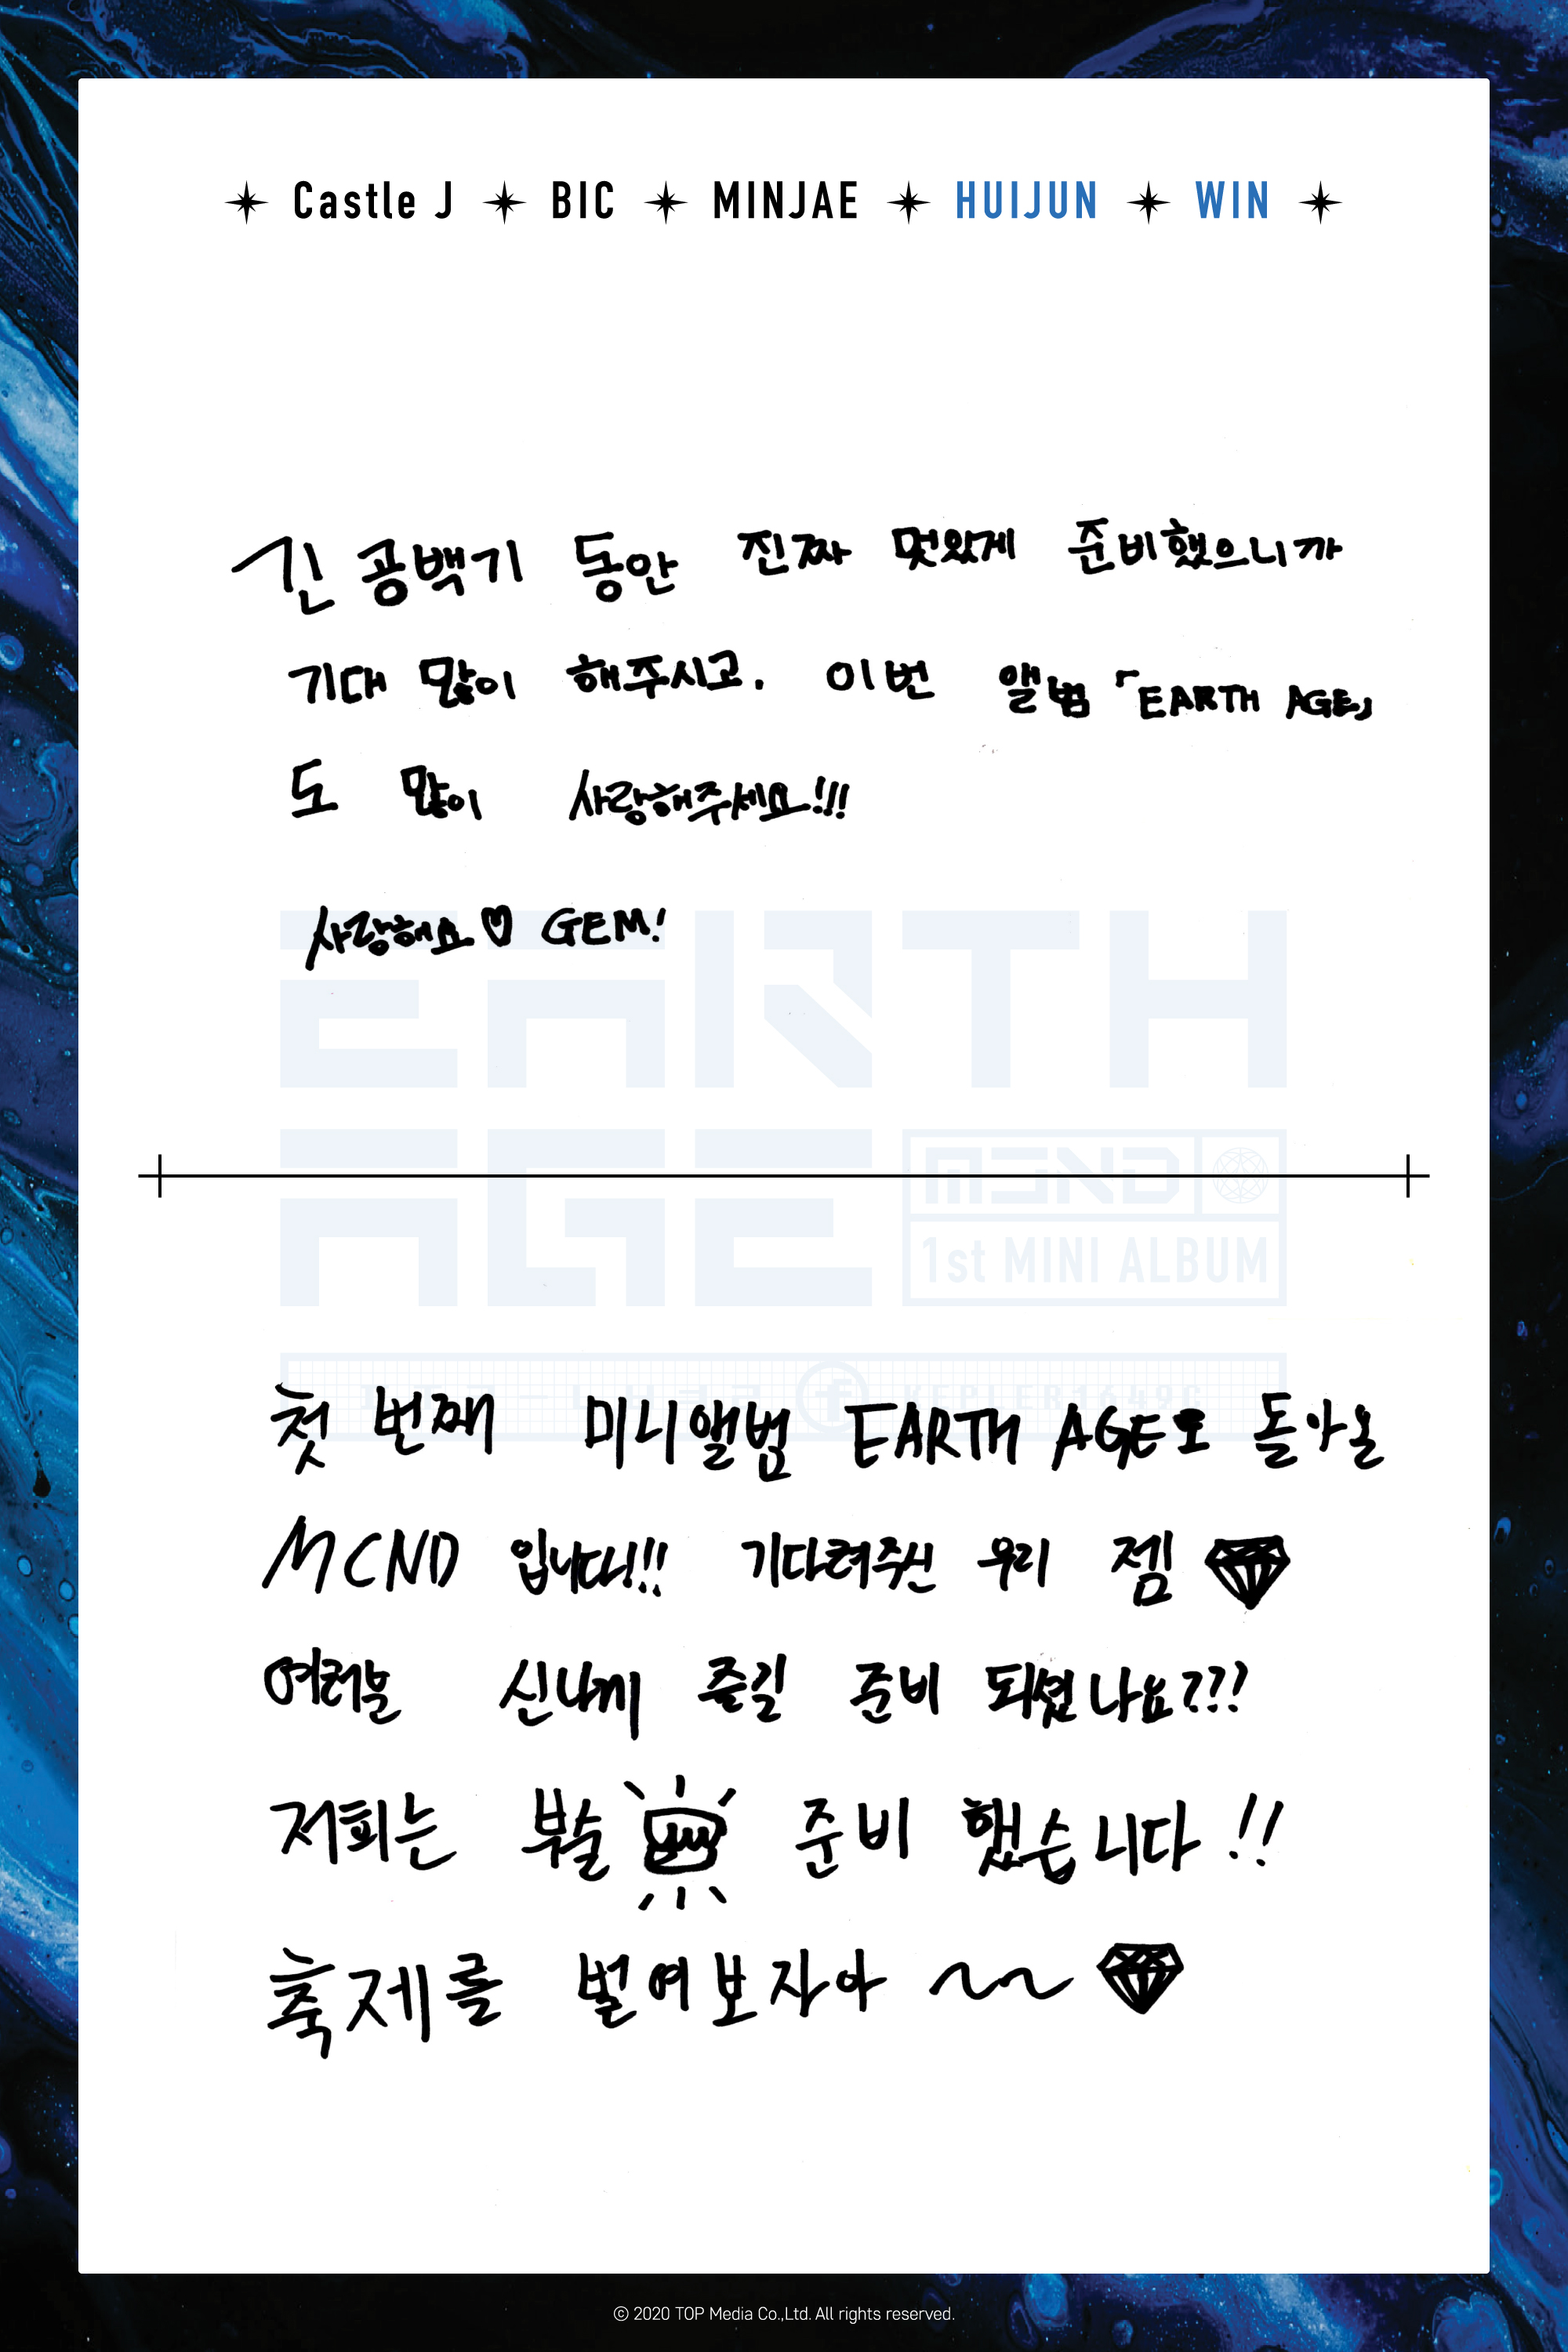 Castle J BIC MINJAE HUIJUN WIN
긴 공백기 동안 진짜 멋있게 준비했으니까
기대 많이 해주시고. 이번 앨범 「EARTH AGE」
도 많이 사랑해주세요!!!
사랑해요♡ GEM!
EARTH
AGE
MCND
1st MINI ALBUM
KEPLER1649C
첫 번째 미니앨범 EARTH AGE로 돌아온
MCND 입니다!!! 기다려주신 우리 젬
여러분 신나게 즐길 준비 되셨나요???
저희는 부술 준비 했습니다!!
축제를 벌여보자아 ~~
© 2020 TOP Media Co.,Ltd. All rights reserved.